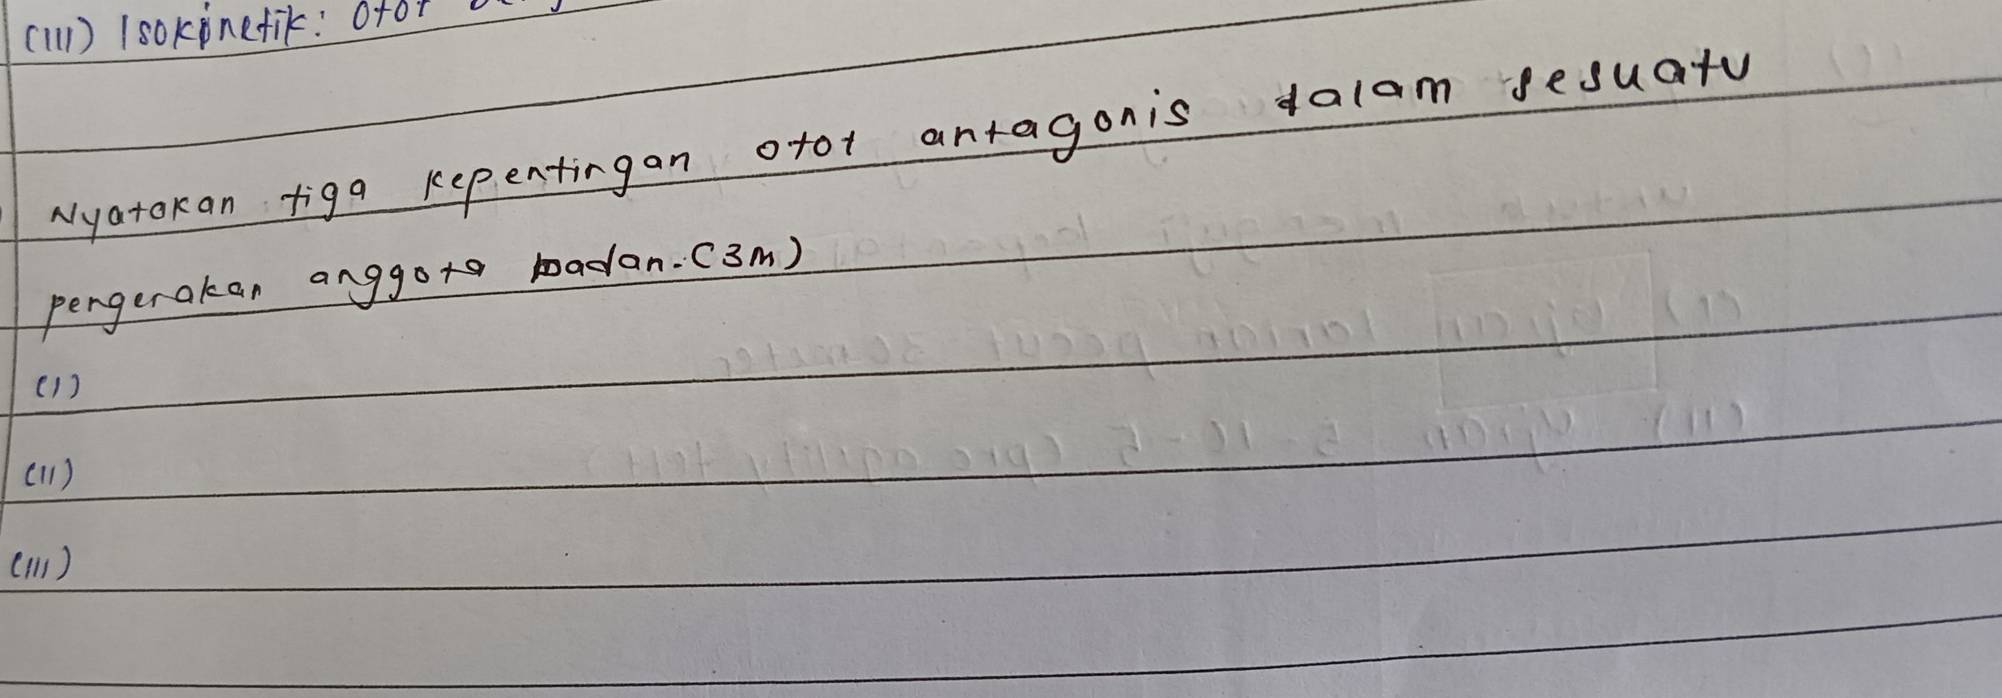 (III) Isokinetik: Otot
Nyatakan tiga kepentingan otot antagonis dalam sesuatu
pengerakan anggota badan. (3m)
(I)
(II)
(III)